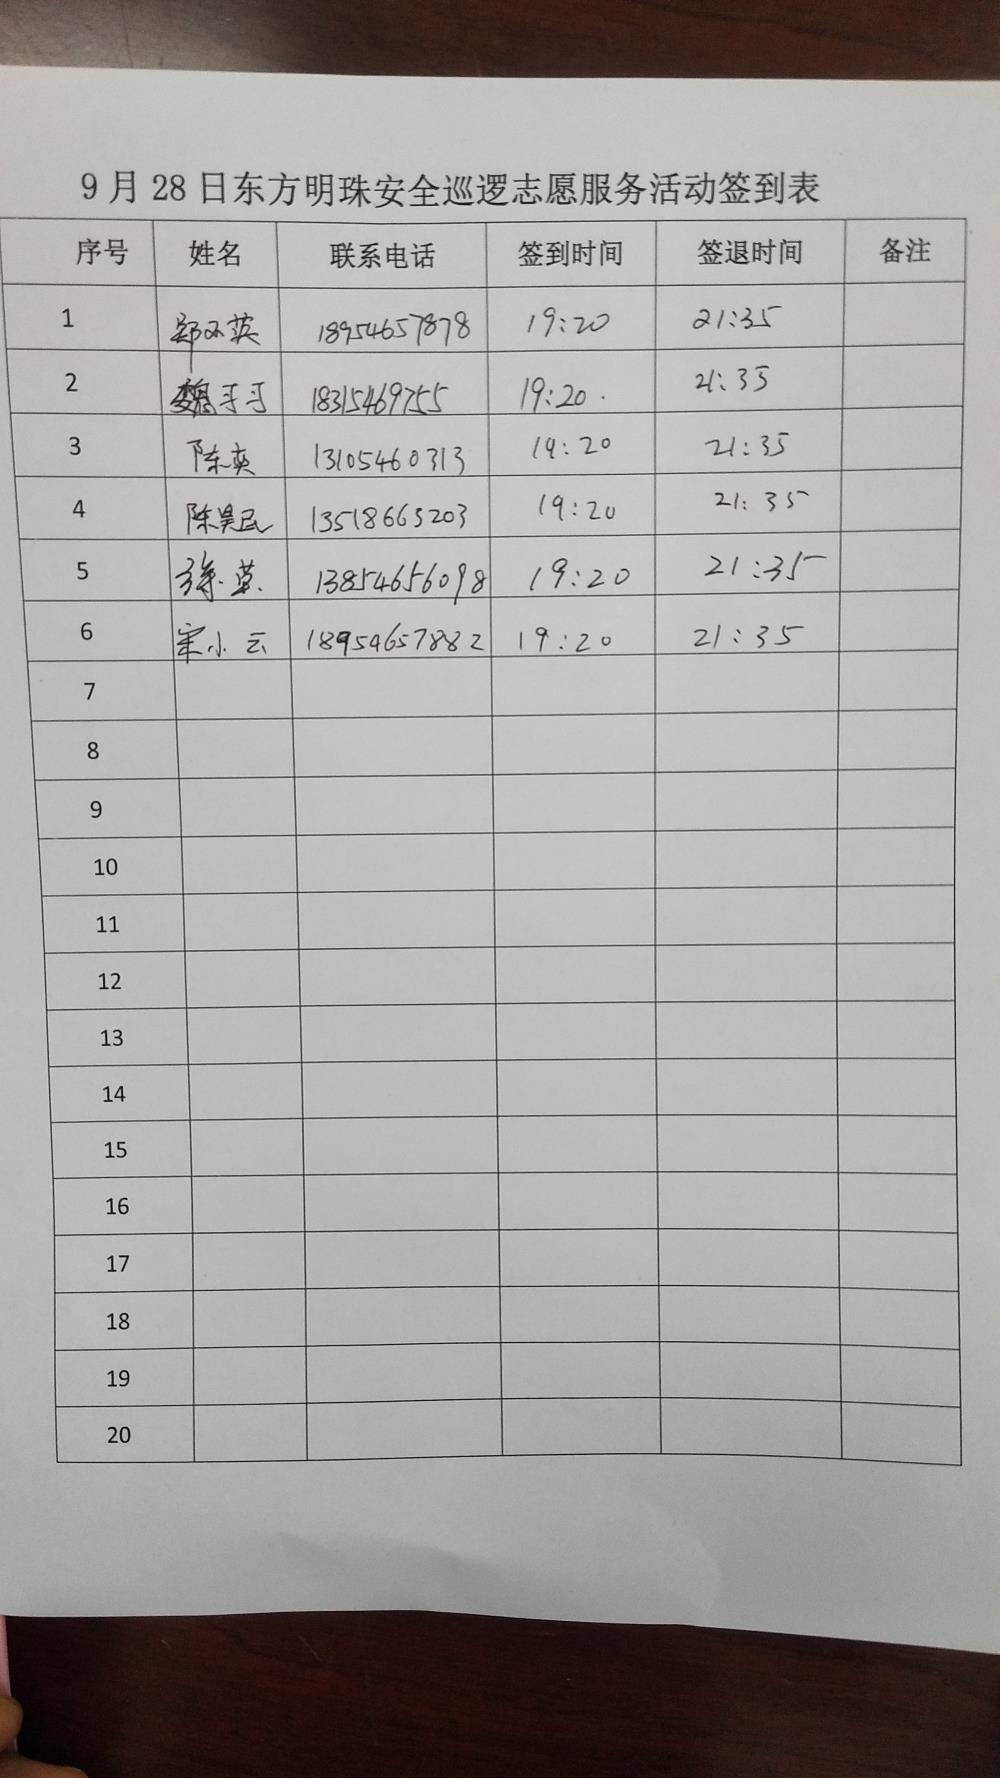 9月28日东方明珠安全巡逻志愿服务活动签到表
序号 姓名 联系电话 签到时间 签退时间 备注
1 18954657878 19:20 21:35
2 魏 18315469755 19:20. 21:35
3 陈英 13105460313 19:20 21:35
4 陈昊民 13518663203 19:20 21:35
5 13854656098 19:20 21:35
6 宋小云 18954657882 19:20 21:35
7
8
9
10
11
12
13
14
15
16
17
18
19
20